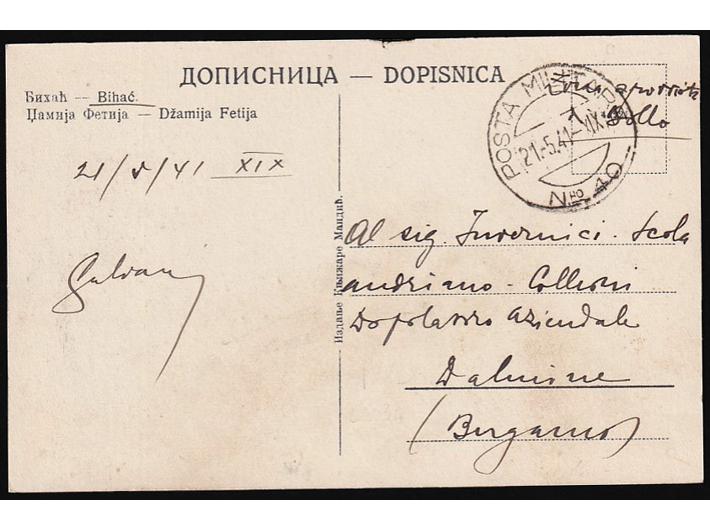 ДОПИСНИЦА — DOPISNICA
Бихаћ — Bihać.
Џамија Фетија — Džamija Fetija
POSTA MILITARE
21.5.41.XIX
Nro 40
bollo
21/5/41 XIX
Издање Књижаре Мандић.
Al sig. Invernici. Scola
andriano - Colleoni
Dopolavoro aziendale
Dalmine
(Bergamo)